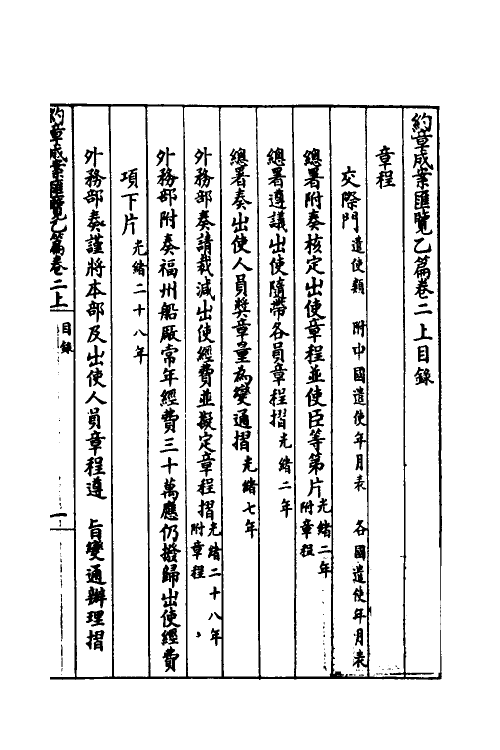 約章成案匯覽乙篇卷二上目錄
章程
交際門 遣使類 附中國遣使年月表 各國遣使年月表
總署附奏核定出使章程並使臣等第片 光緒二年 附章程
總署遵議出使隨帶各員章程摺 光緒二年
總署奏出使人員獎章量為變通摺 光緒七年
外務部奏請裁減出使經費並擬定章程摺 光緒二十八年 附章程
外務部附奏福州船廠常年經費三十萬應仍撥歸出使經費
項下片 光緒二十八年
外務部奏謹將本部及出使人員章程遵 旨變通辦理摺
約章成案匯覽乙篇卷二上 目錄 一